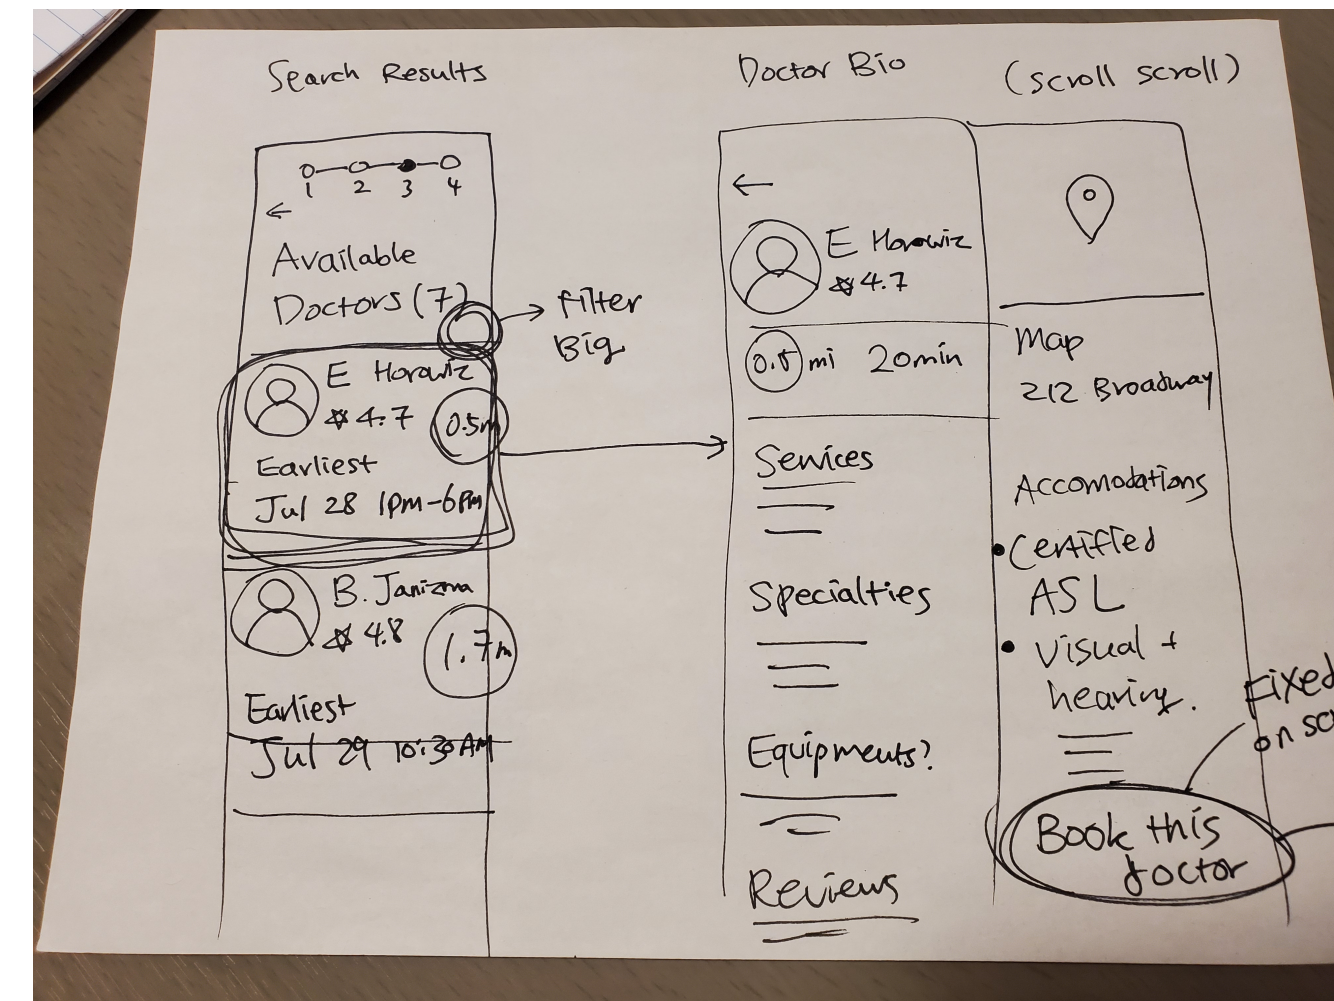 Search Results
1 2 3 4
←
Available
Doctors (7)
→ filter
Big
E Horowiz
☆ 4.7
0.5m
Earliest
Jul 28 1pm-6pm
B. Janizma
☆ 4.8
1.7m
Earliest
Jul 29 10:30AM
Doctor Bio
←
E Horowiz
☆ 4.7
0.5 mi 20min
Services
Specialties
Equipments?
Reviews
(scroll scroll)
Map
212 Broadway
Accomodations
• Certified
ASL
• Visual +
hearing.
Fixed
on
Book this
doctor